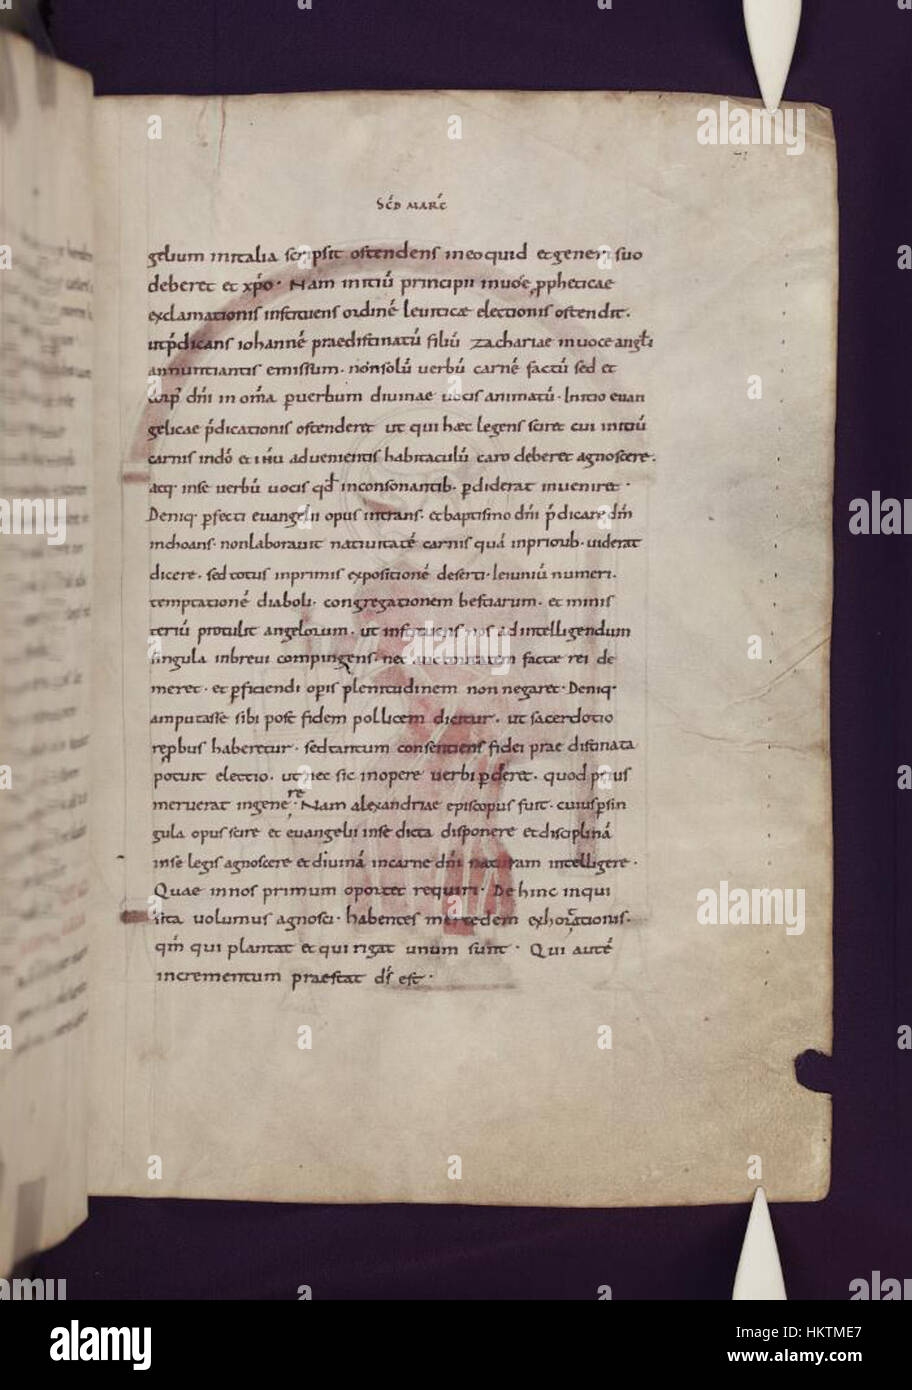 SCD MARC
gelium initalia scripsit ostendens ineoquid etgeneri suo
deberet et xp̄o · Nam initiū principii inuoce ꝓpheticae
exclamationis instituens ordinē leuiticae electionis ostendit .
utp̄dicans iohannē praedistinatū filiū zachariae inuoce angl̄i
annuntiantis emissum · nōnsolū uerbū carnē factū sed et
dn̄i in om̄a ꝑuerbum diuinae uocis animatū · Initio euan
gelicae p̄dicationis ostenderet ut qui haec legens sciret cui initiū
carnis indn̄o et ihū aduenientis habitaculū caro deberet agnoscere .
acq· inse uerbū uocis qd̄ inconsonantib· ꝑdiderat inueniret ·
Deniq· ꝑfecti euangelii opus intrans · etbaptismo dn̄i p̄dicare dn̄m
inchoans · nonlaborauit natiuitatē carnis quā inpriorib· uiderat
dicere · sed totus inprimis expositionē deserti · Ieiuniū numeri ·
temptationē diaboli · congregationem bestiarum · et minis
teriū protulit angelorum · ut instituens nos adintelligendum
singula inbreui compingens · nec auctoritatem factae rei de
meret · et ꝑficiendi oꝑis plenitudinem non negaret · Deniq·
amputasse sibi post fidem pollicem dicitur · ut sacerdotio
reꝓbus haberetur · sedtantum consentiens fidei prae distinata
potuit electio · ut nec sic inopere uerbi ꝑderet · quod prius
meruerat ingenere · Nam alexandriae episcopus fuit · cuiusꝑsin
gula opus scire et euangelii inse dicta disponere etdisciplinā
inse legis agnoscere etdiuinā incarne dn̄i naturam intelligere ·
Quae innos primum oportet requiri · Dehinc inqui
sita uolumus agnosci · habentes mercedem exhortationis ·
qm̄ qui plantat et qui rigat unum sunt · Qui autē
incrementum praestat dŝ est ·
alamy
Image ID: HKTME7
www.alamy.com